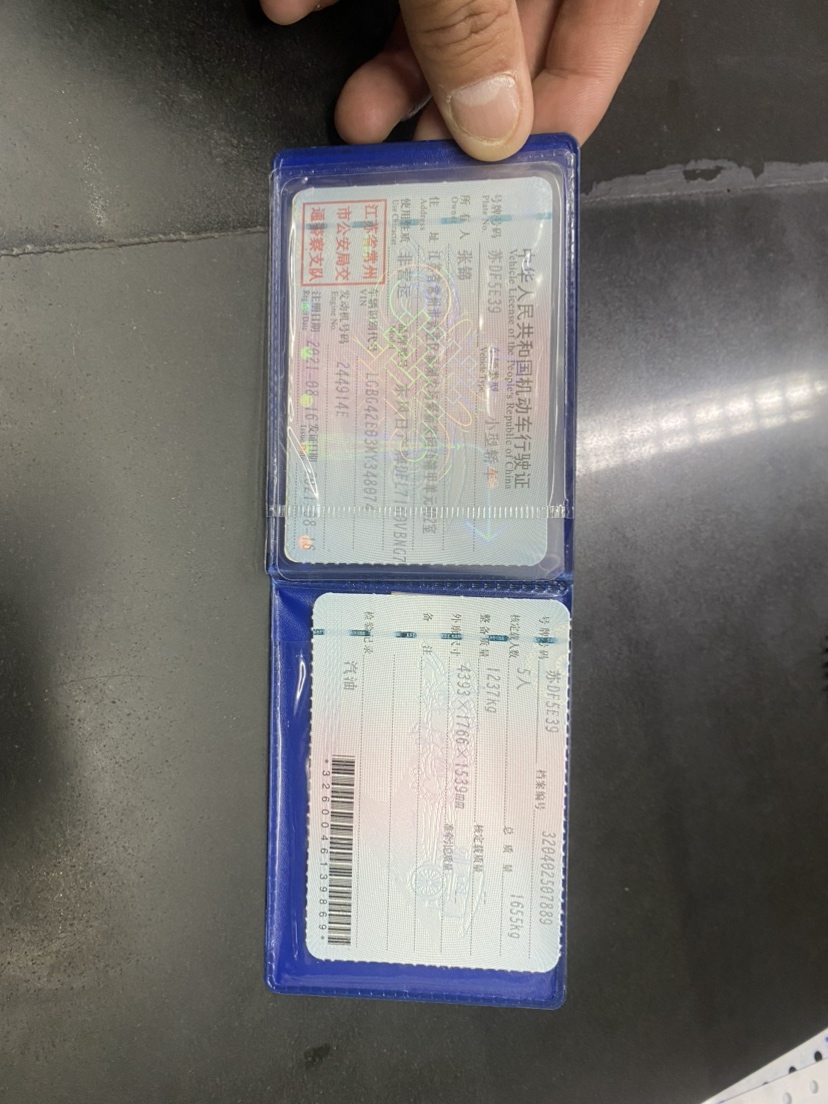 中华人民共和国机动车行驶证
Vehicle License of the People's Republic of China
号牌号码 苏DF5E39 车辆类型 小型轿车
Plate No. Vehicle Type
所有人 张锦
Owner
住址 江苏省常州市
Address
使用性质 非营运 品牌型号 东风日产牌DFL71
Use Character
江苏省常州
市公安局交
通警察支队
车辆识别代号 LGBG42E03MY34807
VIN
发动机号码 244914E
Engine No.
注册日期 2021-08-16 发证日期 2021-08-16
Register Date Issue
号牌号码 苏DF5E39 档案编号 320402507889
核定载人数 5人 总质量 1655kg
整备质量 1237kg 核定载质量 --
外廓尺寸 4393×1766×1539mm 准牵引总质量 --
备注
检验记录
汽油
*3260046139869*